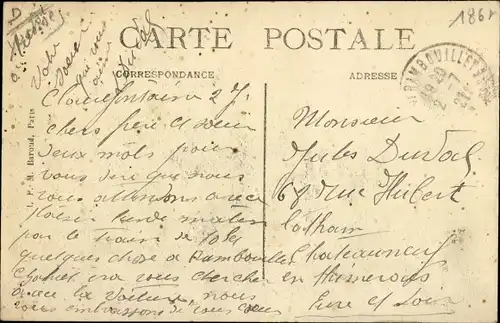 1861
CARTE POSTALE
CORRESPONDANCE
ADRESSE
RAMBOUILLET
Votre
soeur
qui vous
aime
J. P. M. Barond, Paris
Clairefontaine 2 7
chers frère et soeur
deux mots pour
vous dire que nous
vous attendons avec
plaisir lundi matin
par le train de 10 h
quelques chose a Rambouillet
ira vous chercher
avec la voiture, nous
vous embrassons de tous coeur
Monsieur
Jules Duval
68 rue Hubert
Lotham
Chateauneuf
en Thimerais
Eure et Loir